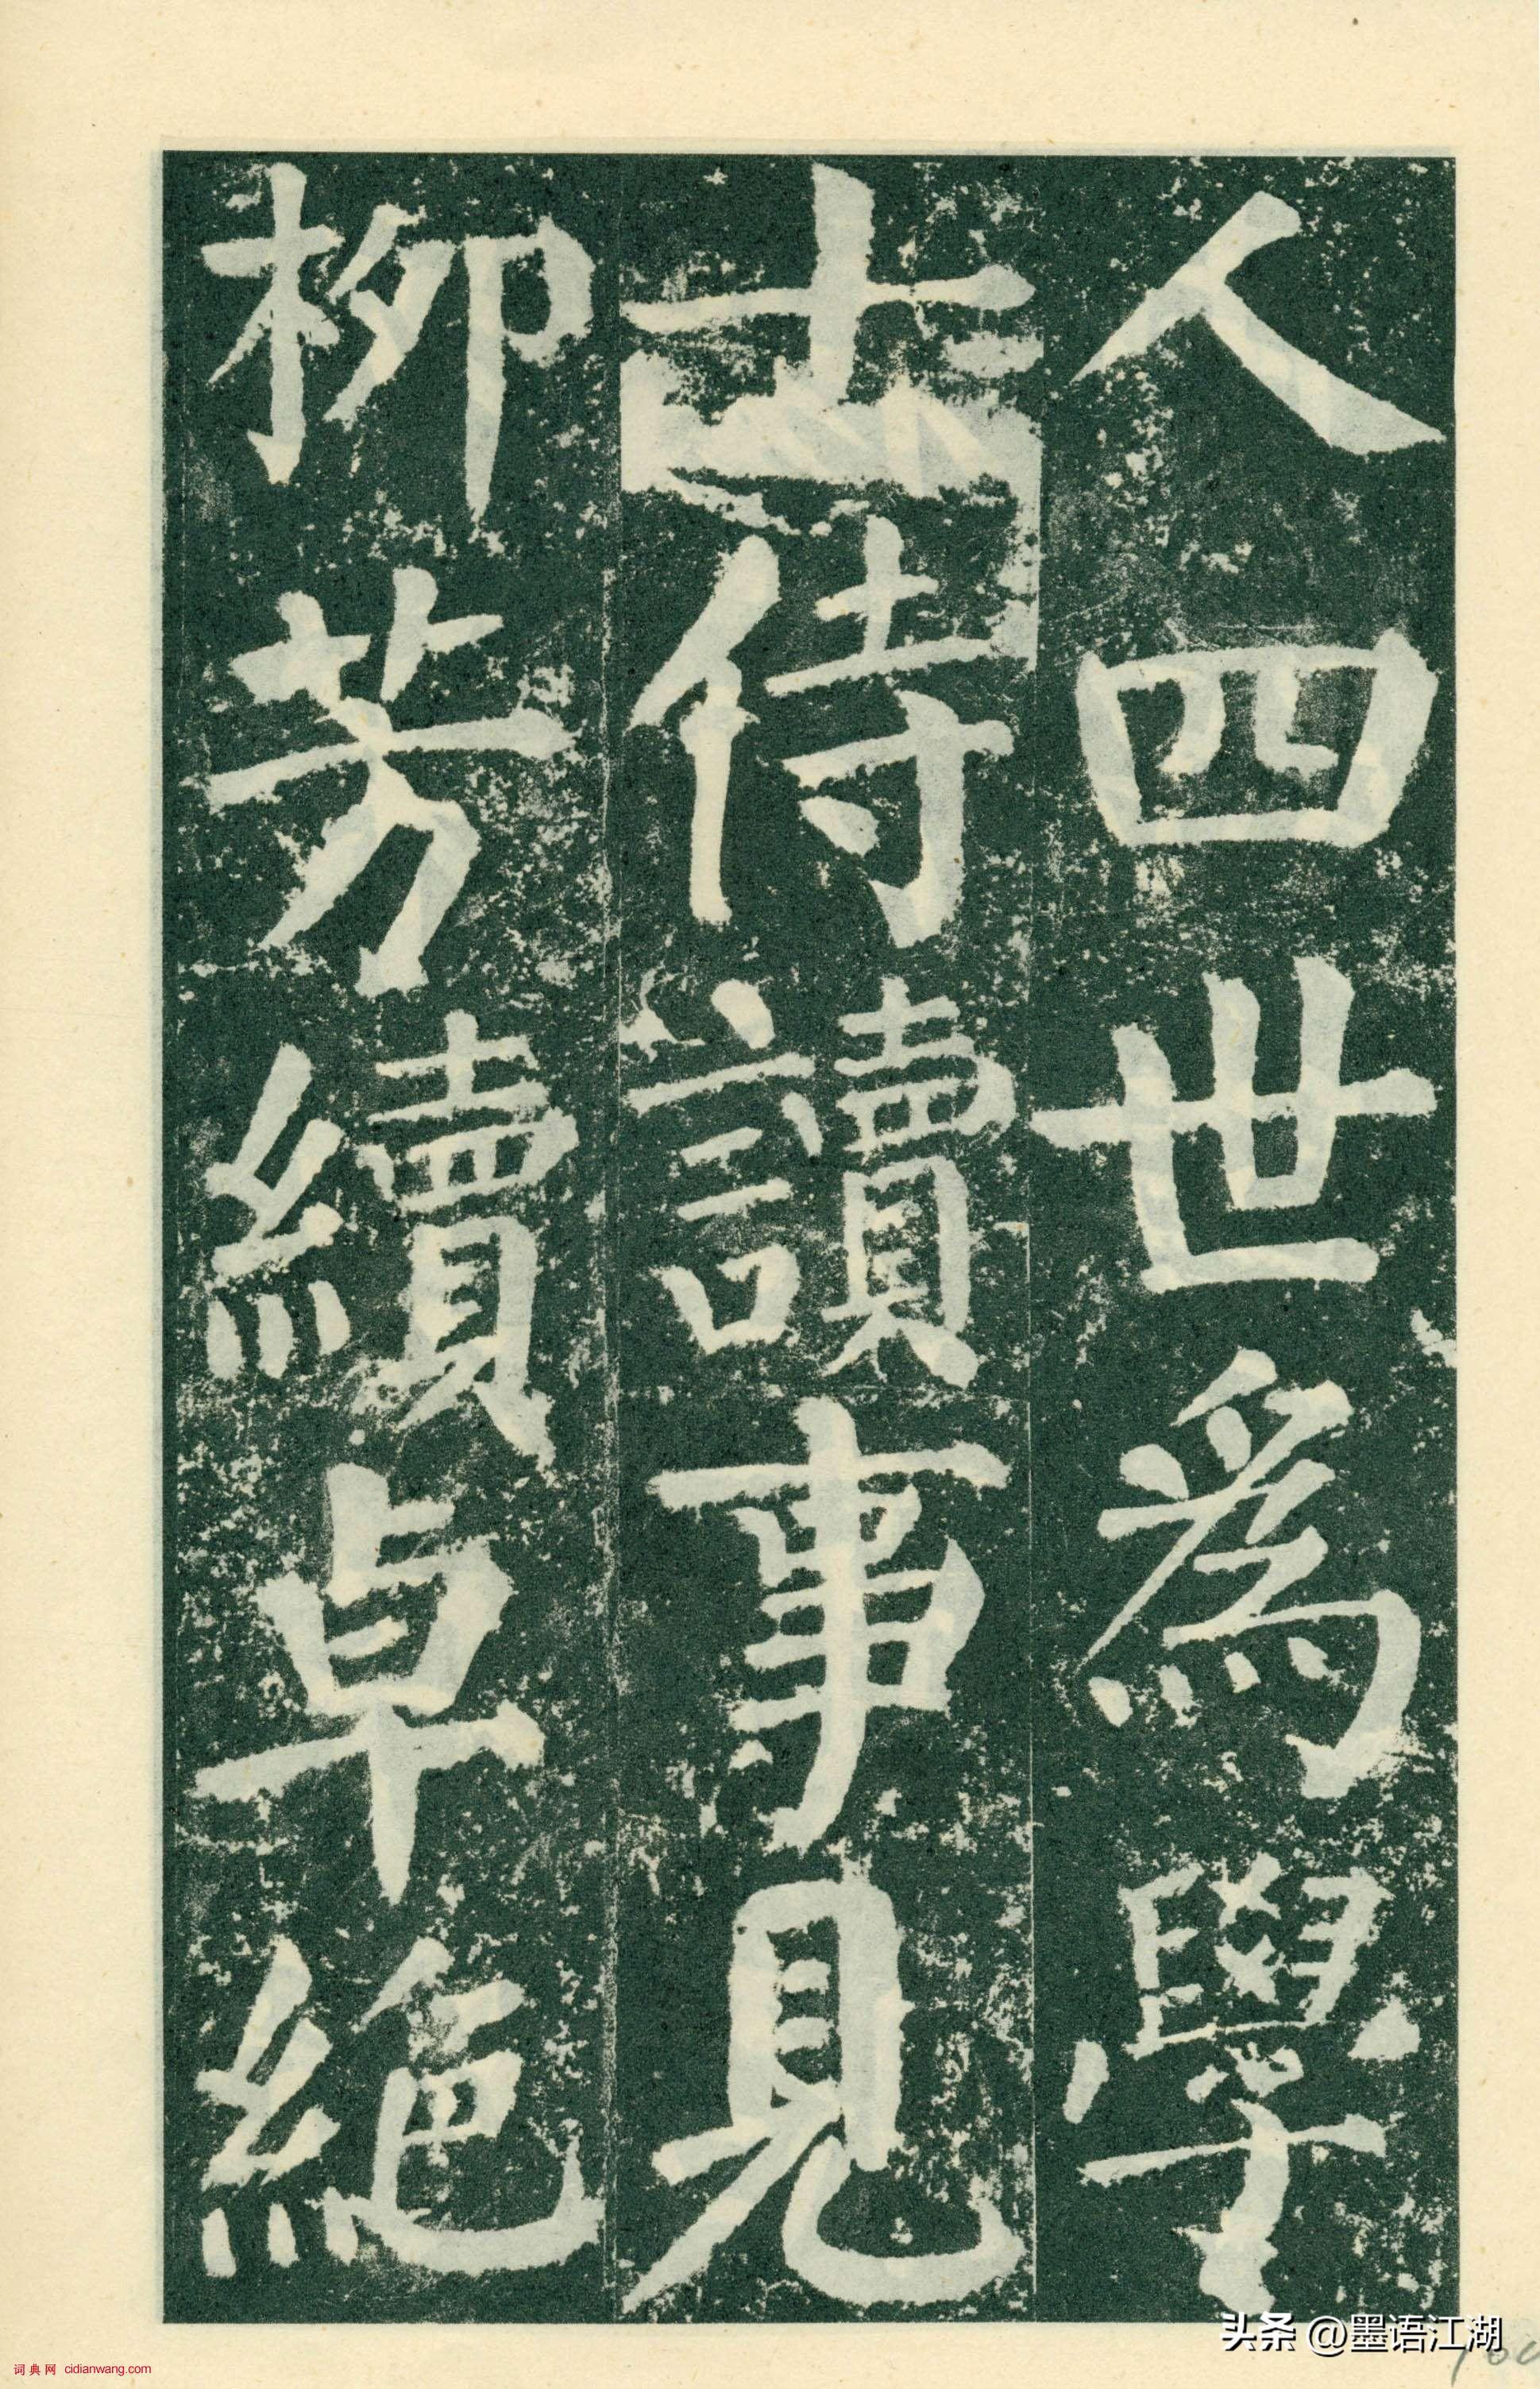 人四世爲學
士侍讀事見
柳芳續卓絕
头条 @墨语江湖
词典网 cidianwang.com